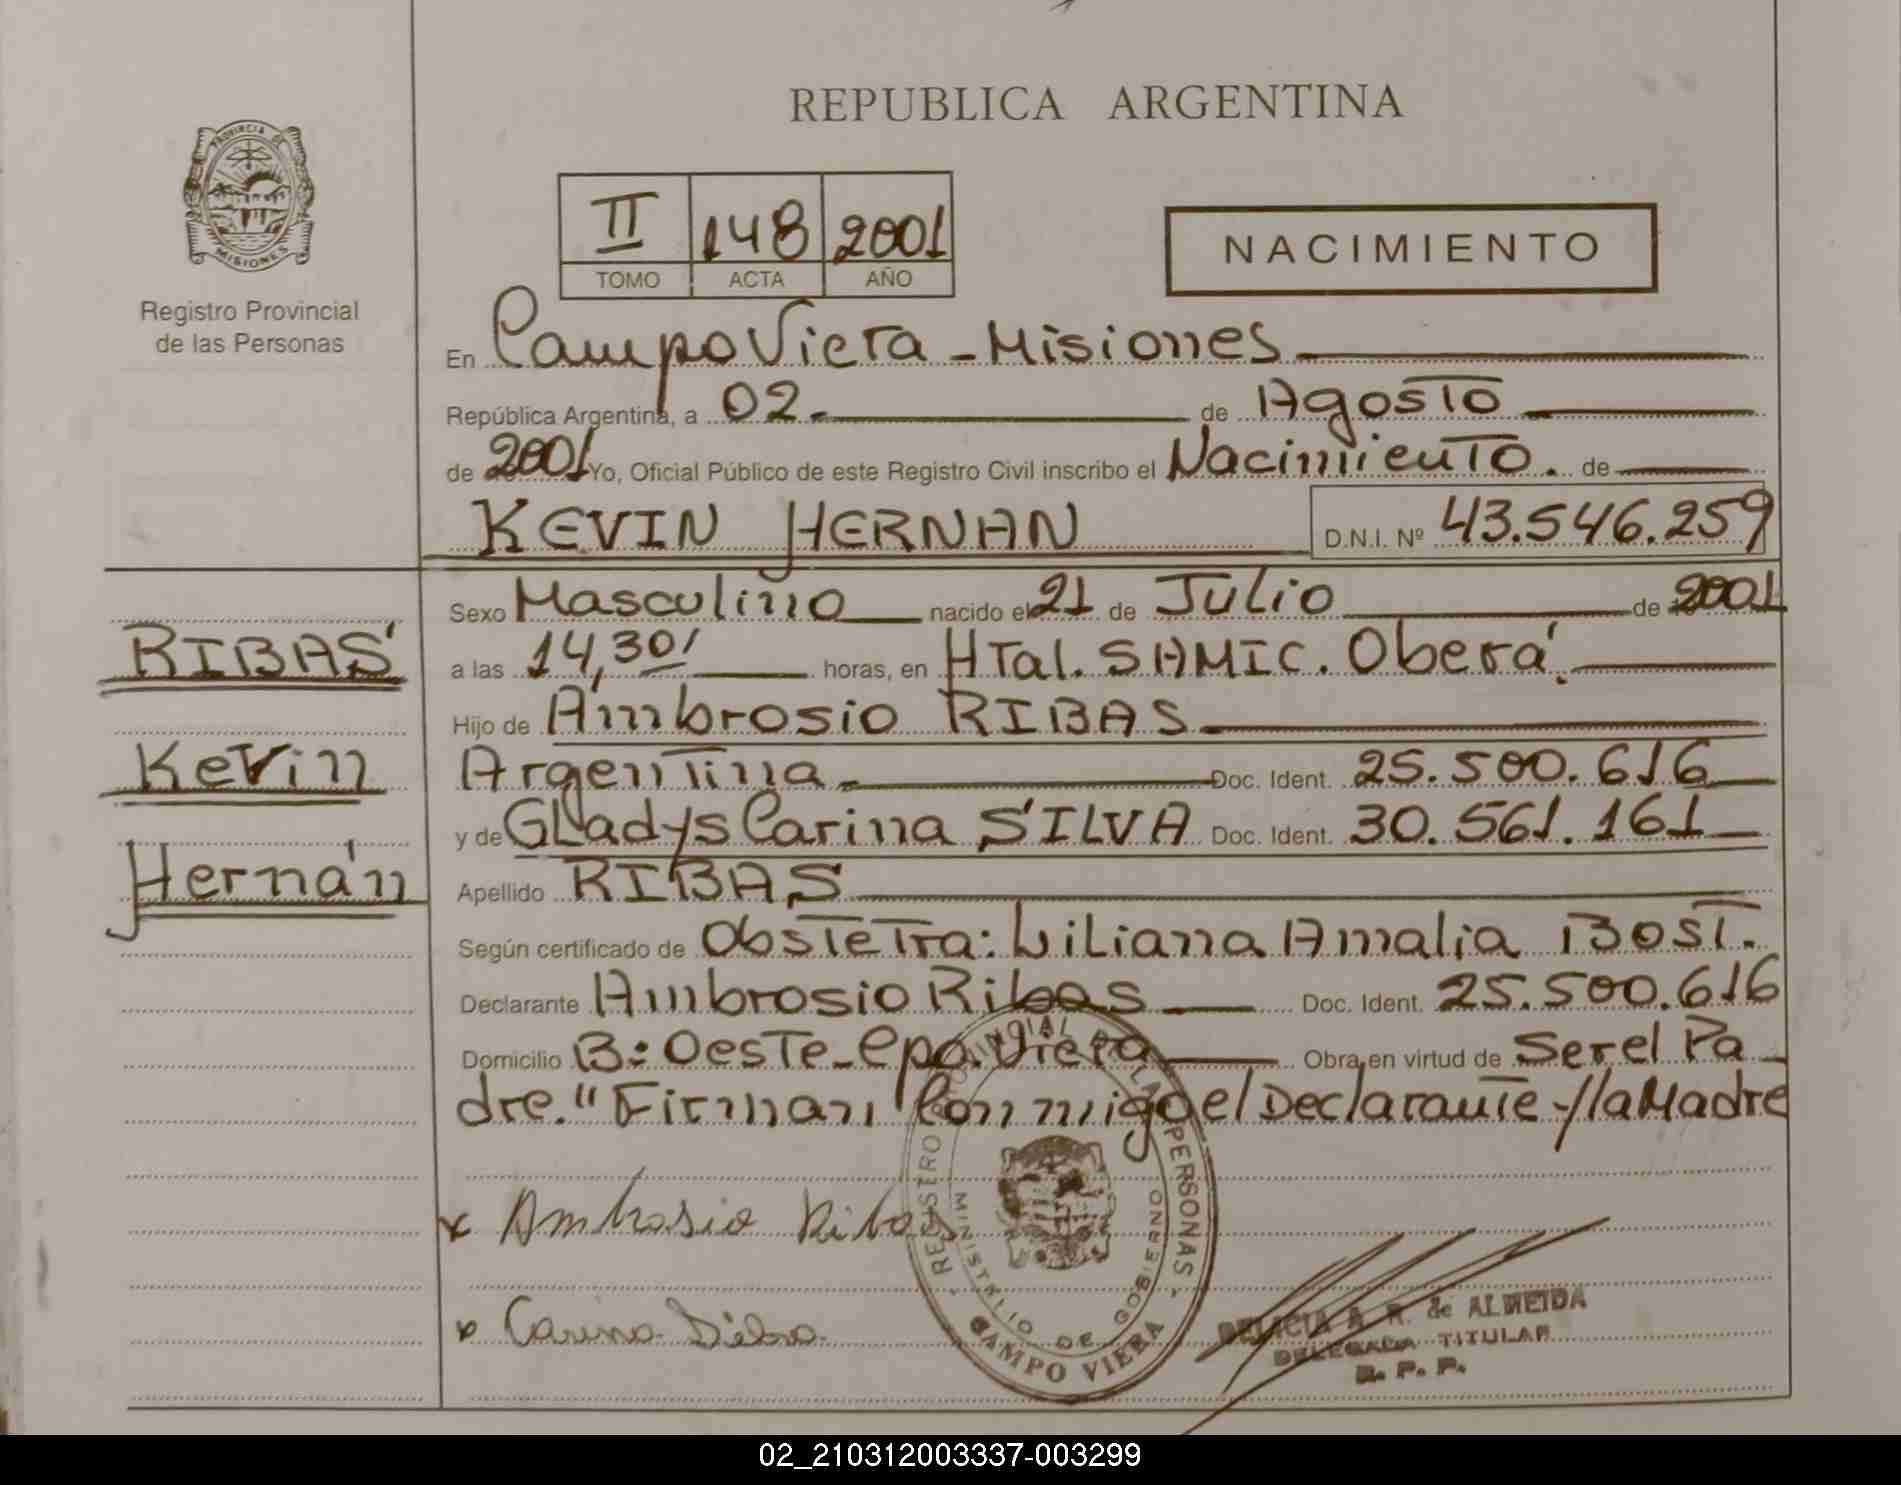 REPUBLICA ARGENTINA
PROVINCIA DE
MISIONES
Registro Provincial
de las Personas
II 148 2001
TOMO ACTA AÑO
NACIMIENTO
En Campo Viera - Misiones
República Argentina, a 02. de Agosto
de 2001 Yo, Oficial Público de este Registro Civil inscribo el Nacimiento. de
KEVIN HERNAN D.N.I. Nº 43.546.259
RIBAS
Kevin
Hernán
Sexo Masculino nacido el 21 de Julio de 2001
a las 14,30' horas, en HTal. SAMIC. Oberá.
Hijo de Ambrosio RIBAS
Argentina Doc. Ident. 25.500.616
y de GLadys Carina SILVA Doc. Ident. 30.561.161
Apellido RIBAS
Según certificado de Obstetra: Liliana Amalia Bost.
Declarante Ambrosio Ribas Doc. Ident. 25.500.616
Domicilio B: Oeste - Cpo. Viera Obra en virtud de Ser el Pa
dre." Firman Conmigo el Declarante y la Madre
x Ambrosio Ribas
x Carina Silva
REGISTRO PROVINCIAL DE LAS PERSONAS
MINISTERIO DE GOBIERNO
CAMPO VIERA
DELICIA A. R. de ALMEIDA
DELEGADA TITULAR
R. P. P.
02_210312003337-003299